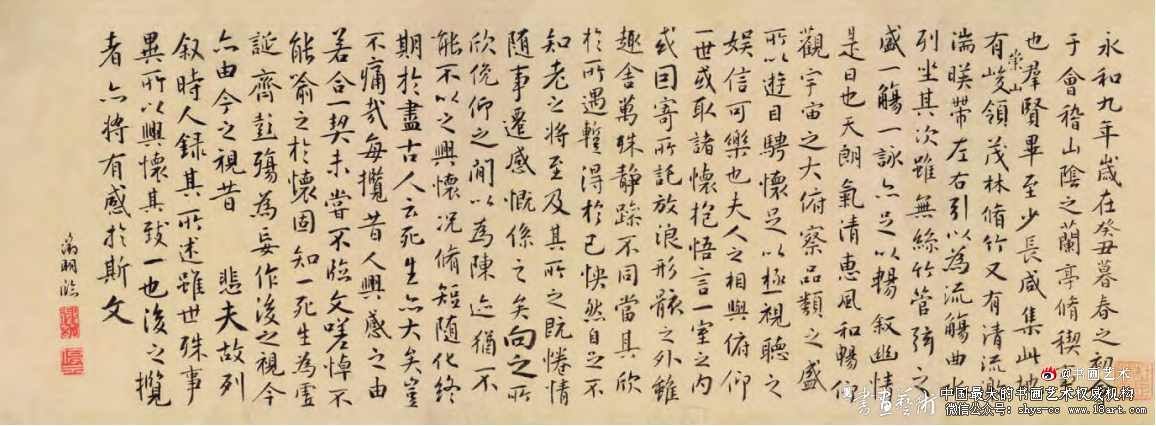 永和九年歲在癸丑暮春之初會
于會稽山陰之蘭亭脩禊事
也羣賢畢至少長咸集此地
有崇山峻領茂林脩竹又有清流激
湍暎帶左右引以為流觴曲
列坐其次雖無絲竹管弦之
盛一觴一詠亦足以暢叙幽情
是日也天朗氣清惠風和暢仰
觀宇宙之大俯察品類之盛
所以遊目騁懷足以極視聽之
娛信可樂也夫人之相與俯仰
一世或取諸懷抱悟言一室之內
或因寄所託放浪形骸之外雖
趣舍萬殊静躁不同當其欣
於所遇蹔得於己怏然自足不
知老之將至及其所之既惓情
随事遷感慨係之矣向之所
欣俛仰之閒以為陳迹猶不
能不以之興懷况脩短随化終
期於盡古人云死生亦大矣豈
不痛哉每攬昔人興感之由
若合一契未嘗不臨文嗟悼不
能喻之於懷固知一死生為虛
誕齊彭殤為妄作後之視今
亦由今之視昔 悲夫故列
叙時人録其所述雖世殊事
異所以興懷其致一也後之攬
者亦將有感於斯文
徵明臨
@书画艺术
書畫藝術 中国最大的书画艺术权威机构
微信公众号：shys-cc www.18art.com